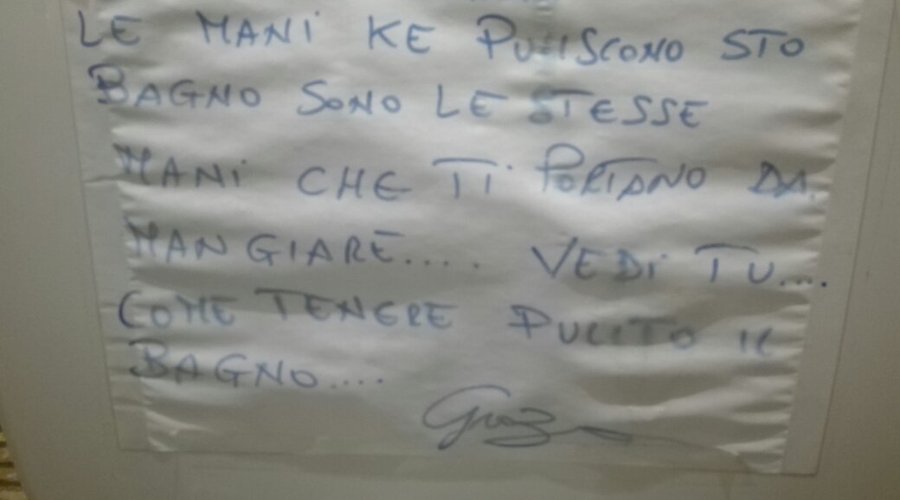 LE MANI KE PULISCONO STO
BAGNO SONO LE STESSE
MANI CHE TI PORTANO DA
MANGIARE..... VEDI TU....
COME TENERE PULITO IL
BAGNO....